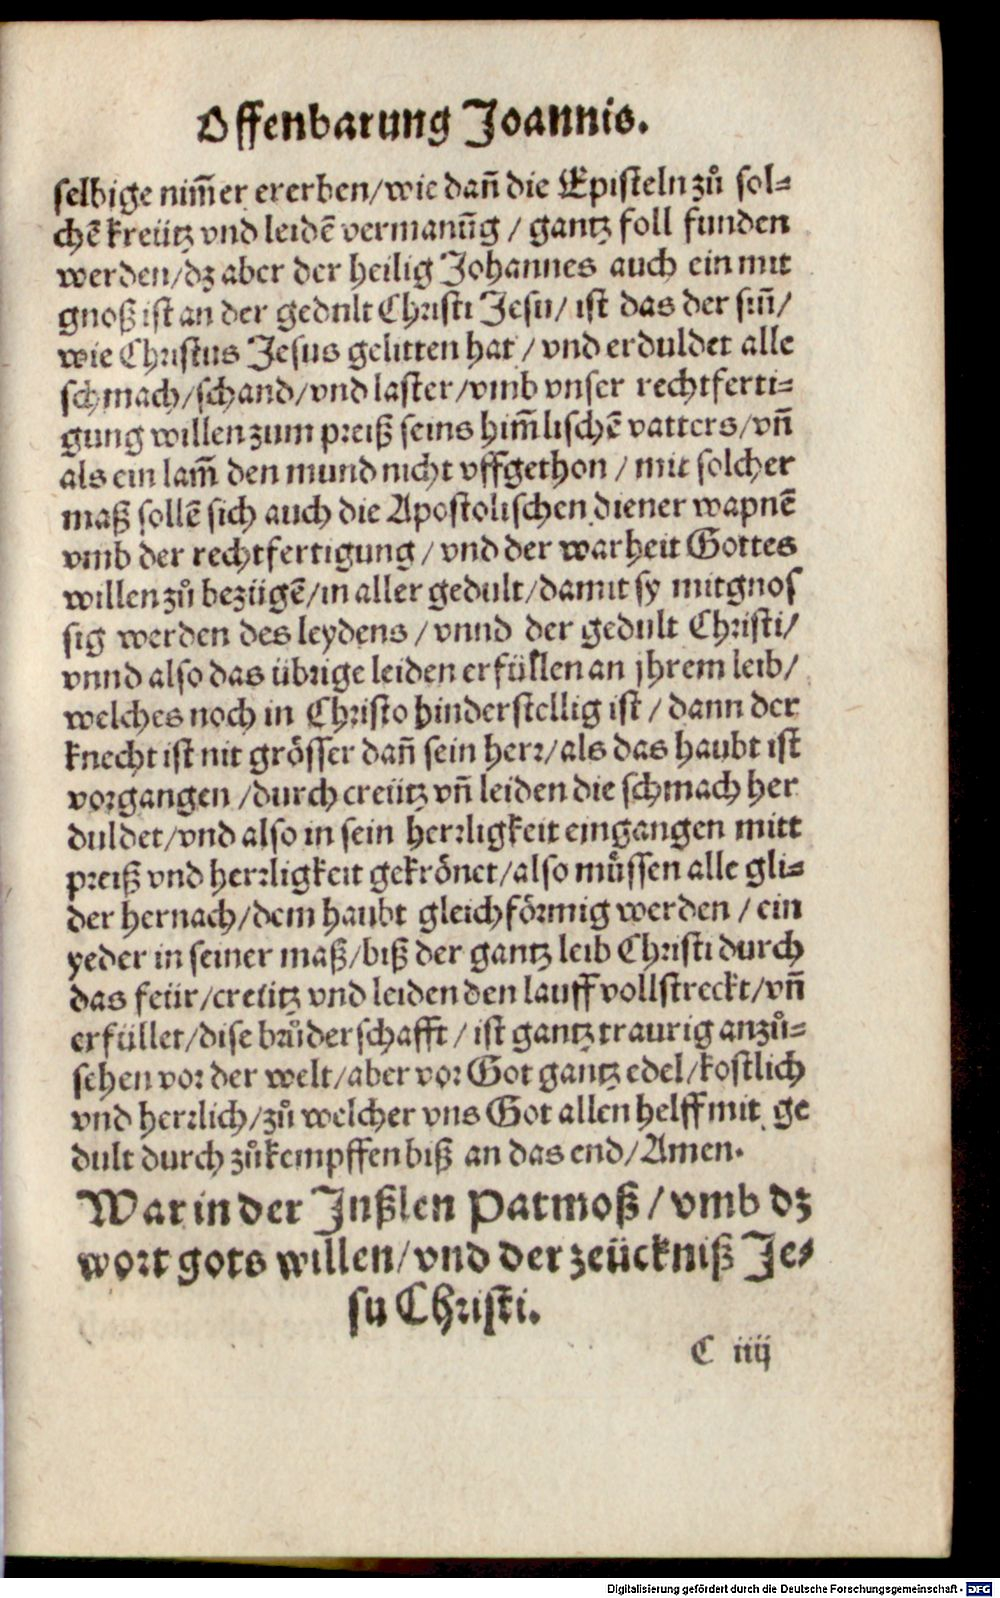 Offenbarung Joannis.
selbige nim̃er ererben/wie dañ die Episteln zů sol-
chẽ kreütz vnd leidẽ vermanũg / gantz foll funden
werden/dz aber der heilig Johannes auch ein mit
gnoß ist an der gedult Christi Jesu/ ist das der siñ/
wie Christus Jesus gelitten hat / vnd erduldet alle
schmach/schand/vnd laster/vmb vnser rechtferti-
gung willen zum preiß seins him̃lischẽ vatters/vñ
als ein lam̃ den mund nicht vffgethon / mit solcher
maß sollẽ sich auch die Apostolischen diener wapnẽ
vmb der rechtfertigung / vnd der warheit Gottes
willen zů bezügẽ/in aller gedult/damit sy mitgnos
sig werden des leydens / vnnd der gedult Christi/
vnnd also das übrige leiden erfüllen an jhrem leib/
welches noch in Christo hinderstellig ist / dann der
knecht ist nit grösser dañ sein herr/als das haubt ist
vorgangen /durch creütz vñ leiden die schmach her
duldet/vnd also in sein herrligkeit eingangen mitt
preiß vnd herrligkeit gekrönet/also müssen alle gli-
der hernach/dem haubt gleichförmig werden / ein
yeder in seiner maß/biß der gantz leib Christi durch
das feür/creütz vnd leiden den lauff vollstreckt/vñ
erfüllet/dise brůderschafft / ist gantz traurig anzů-
sehen vor der welt/aber vor Got gantz edel/kostlich
vnd herrlich/zů welcher vns Got allen helff mit ge
dult durch zůkempffen biß an das end/Amen.
War in der Jnßlen Patmoß / vmb dz
wort gots willen/vnd der zeückniß Je-
su Christi.
C iiij
Digitalisierung gefördert durch die Deutsche Forschungsgemeinschaft - DFG